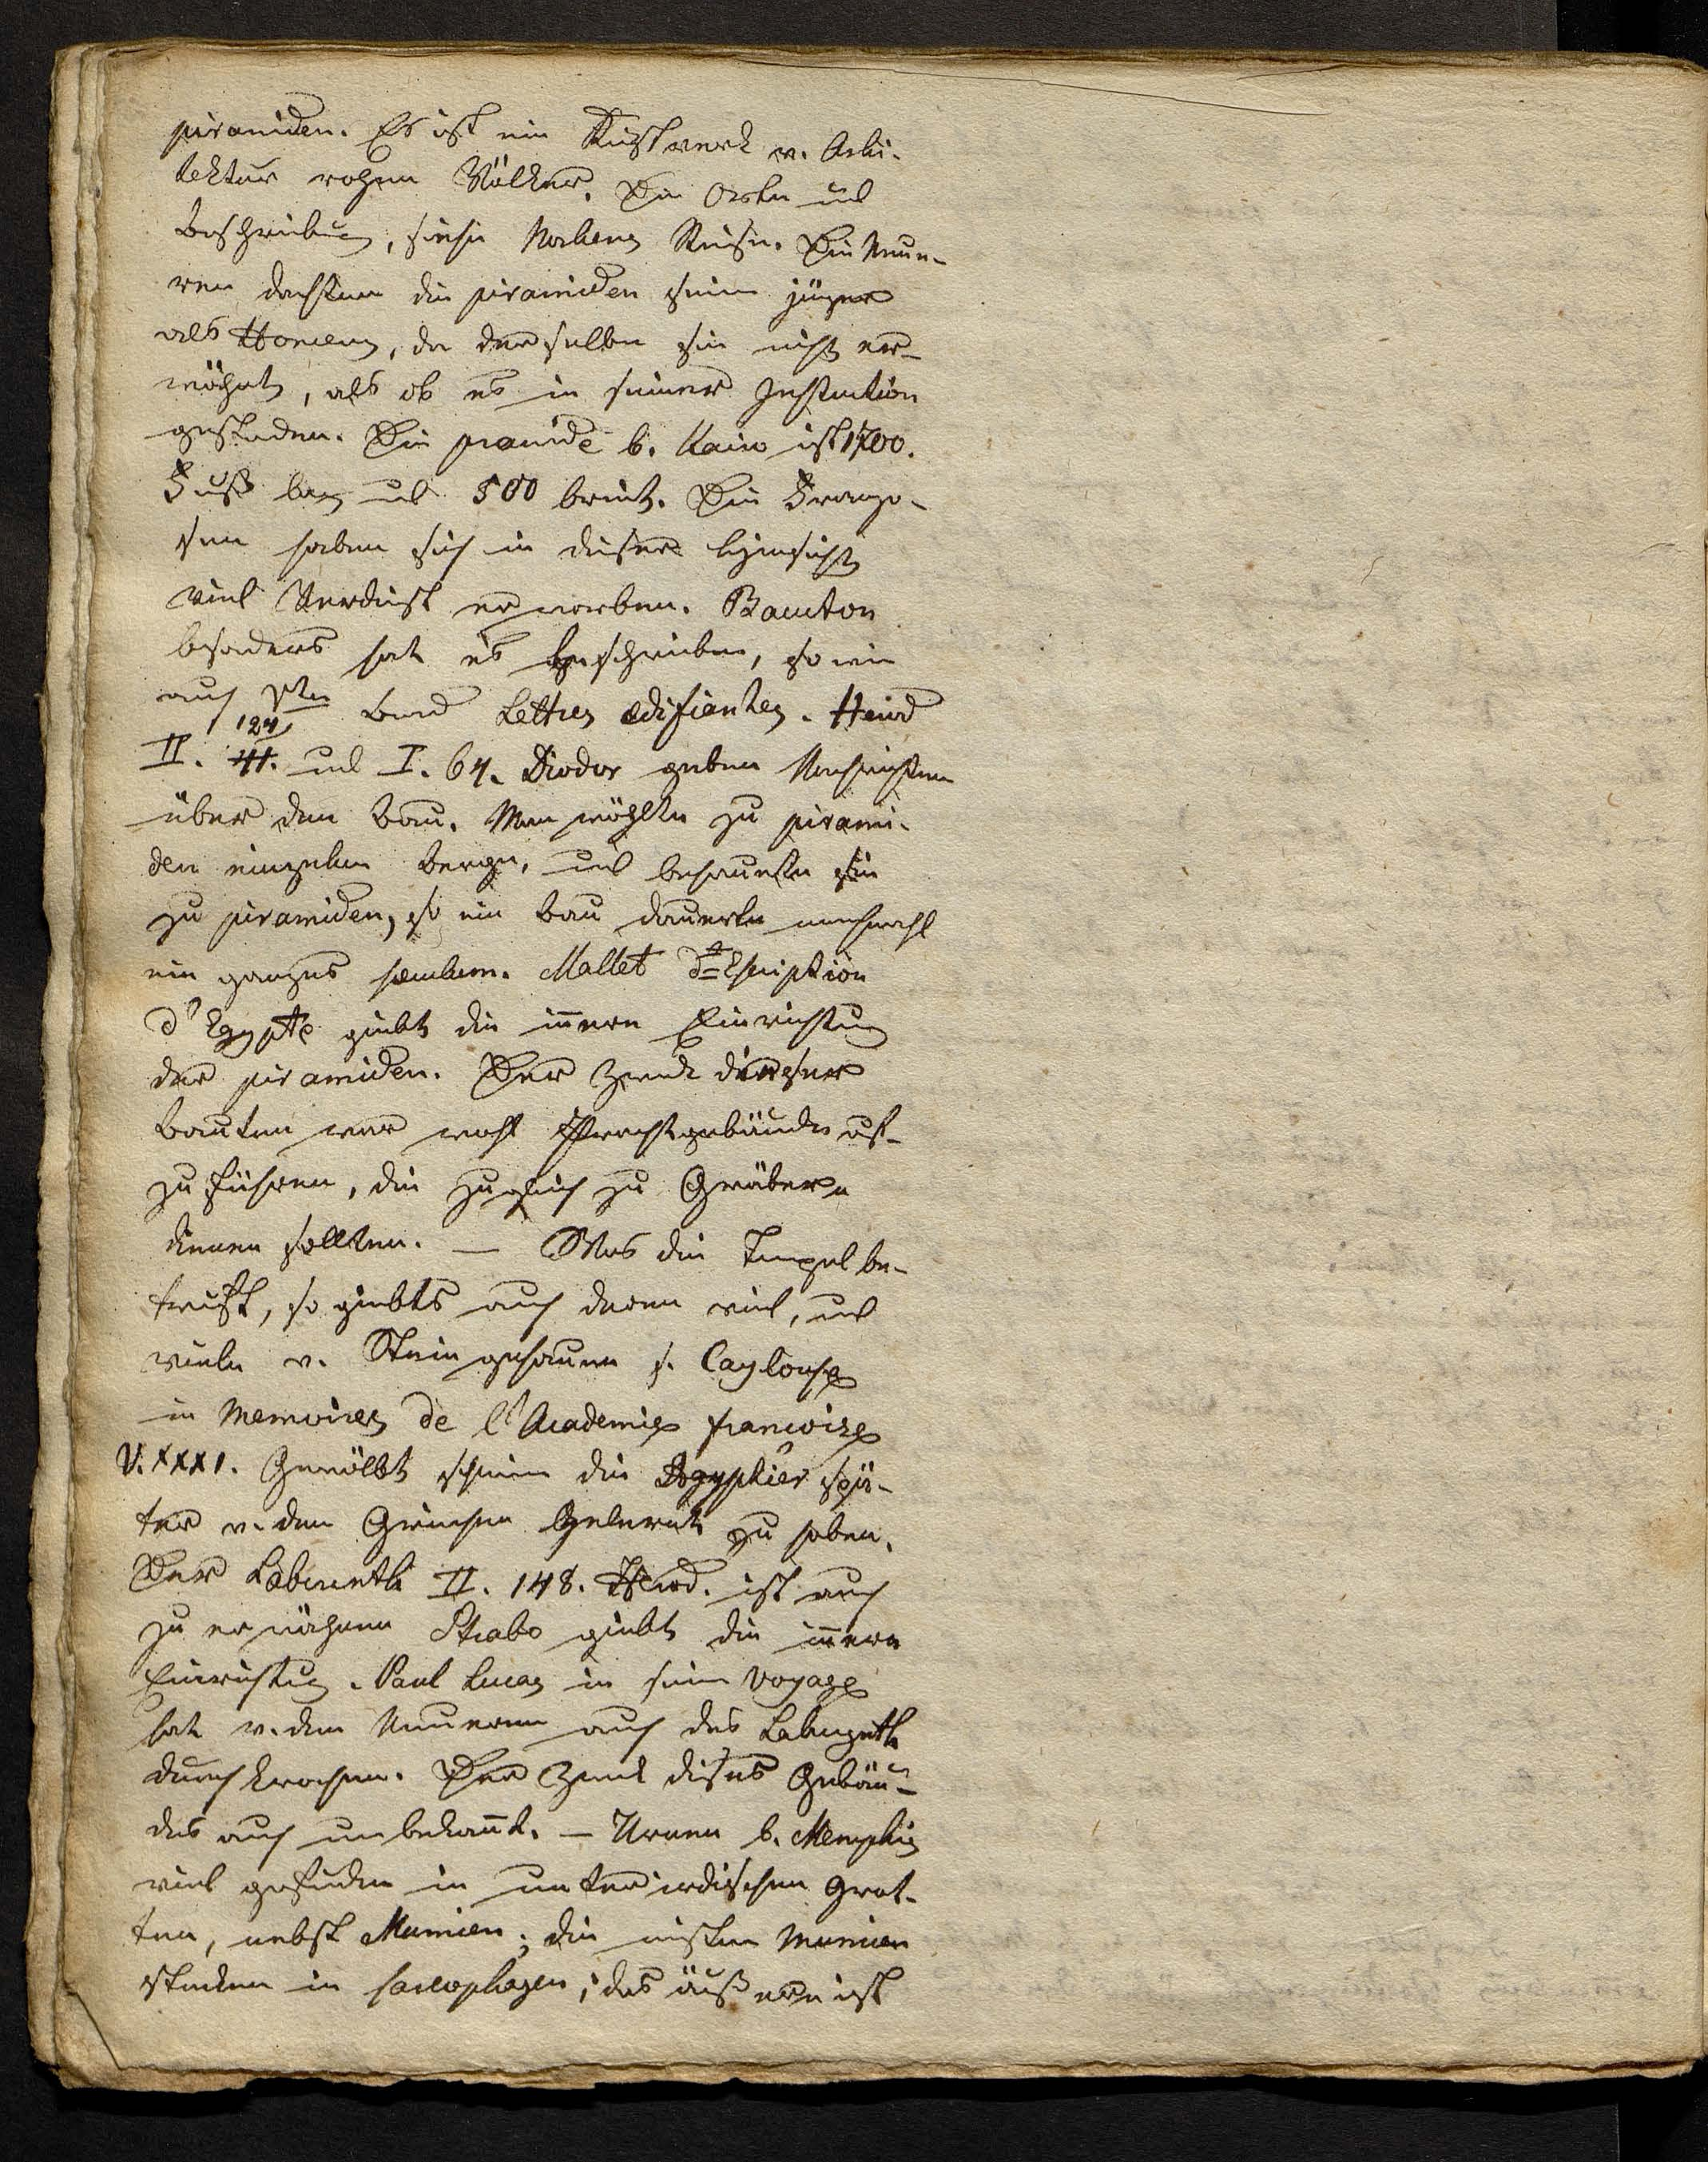 piramiden. Es ist ein Kunstwerk v. Archi-
tektur roher Völker. Die Orte und
Beschreibung, siehe Nordens Reise. Die Neue-
ren dachten die piramiden seien jünger
als Homerus, da derselbe sie nicht er-
wähnt, als ob es in seiner Instruction
gestanden. Die pramide b. Kairo ist 1700.
Fuß lang und 500 breit. Die Franzo-
sen haben sich in dieser Hinsicht
viel Verdienst erworben. Baucton
besonders hat es beschrieben, so wie
auch Band Lettres edifiantes. Herod
II. 124 und I. 64. Diodor geben Nachrichten
über den Bau. Man wählte zu pirami-
den einzelne Berge, und behauete sie
zu piramiden, so ein Bau dauerte manchmahl
ein ganzes seculum. Mallet description
d'Egypte giebt die innere Einrichtung
der piramiden. Der Zweck dieser
Bauten war wohl Prachtgebäude auf-
zuführen, die zugleich zu Gräbern
dienen sollten. — Was die Tempel be-
trift, so giebts auch deren viel, und
viele v. Stein gehauen s. Caylouse
in Memoires de l'Academie francoise
V. XXXI. Gewölbt scheinen die Aegyptier spä-
ter v. den Griechen gelernt zu haben.
Der Laberinth II. 148. Herod. ist auch
zu erwähnen Strabo giebt die innere
Einrichtung. Paul Lucas in sein Voyage
hat v. den Neueren auch das Labyrinth
durchkrochen. Der Zweck dieses Gebäu-
des auch unbekannt. — Urnen b. Memphis
viel gefunden in unterirdischen Grot-
ten, nebst Mumien; die meisten Mumien
stecken in sarcophagen; das äußere ist